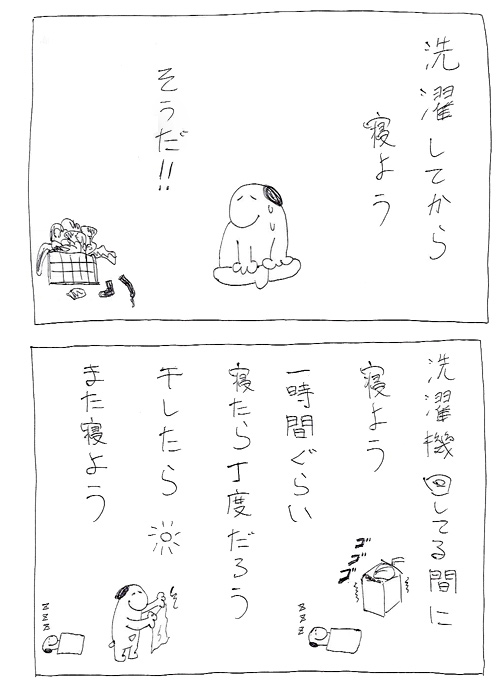 洗濯してから
寝よう
そうだ!!
洗濯機回してる間に
寝よう
一時間ぐらい
寝たら丁度だろう
干したら
また寝よう
ゴゴゴ
zzz
zzz